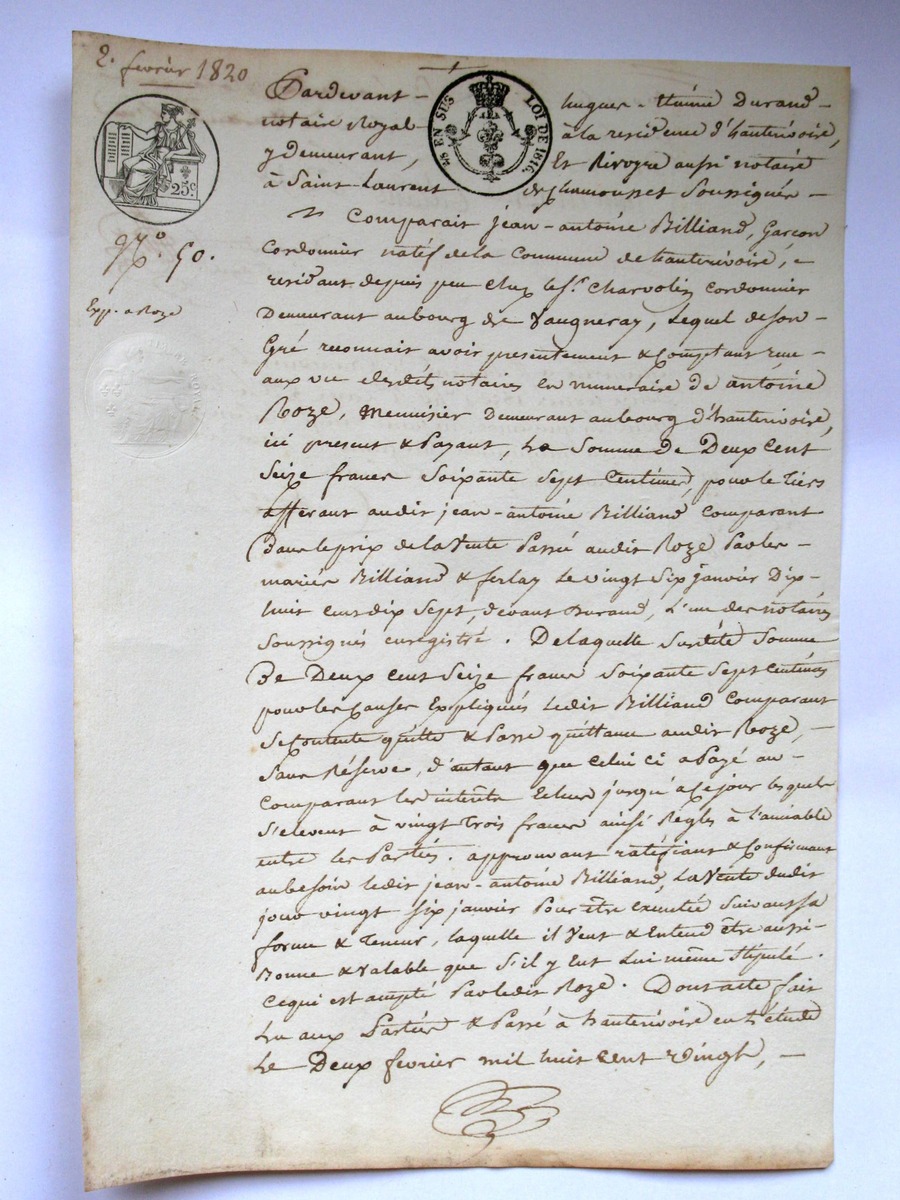 2. fevrier 1820
Pardevant hugues - Aimé Durand
notaire Royal à la residence d'hauterivoire,
y demeurant, Et Rivoyre aussi notaire
à Saint Laurent de chamousset Soussignés
25 EN SUS LOI DE 1816.
25c
N.o 50.
Exp. a Roze
Comparait jean-antoine Billiand, Garçon
Cordonnier natif de la Commune de hauterivoire,
residant depuis peu chez le Sr. Charvolin Cordonnier
Demeurant au bourg de Vaugneray, Lequel de son
Gré reconnait avoir presentement & Comptant recu
aux vu desdits notaires en numeraire de antoine
Roze, Menuisier Demeurant au bourg d'hauterivoire,
ici present & Payant, La Somme de Deux Cent
Seize francs Soixante Sept Centimes, pour le tiers
afferant audit jean-antoine Billiand Comparant
Dans le prix de la Vente Passé audit Roze Par les
mariés Billiand & ferlay Le vingt Six janvier Dix
huit cent dix Sept, devant Durand, L'un des notaires
Soussignés enregistré. De laquelle Susdite Somme
De Deux cent Seize francs Soixante Sept Centimes
pour les Causes Expliqués Ledit Billiand Comparant
Se Contente quitte & Passe quittance audit Roze,
Sans Réserve, d'autant que Celui ci a Payé au
Comparant les interets Echus jusqu'à Ce jour lesquels
S'elevent à vingt Trois francs ainsi Réglés à l'amiable
entre les Parties. approuvant ratifiant & Confirmant
au besoin ledit jean-antoine Billiand, La Vente dudit
jour vingt Six janvier Pour être Executée Suivant Sa
forme & Teneur, laquelle il Veut & Entend être aussi
Bonne & valable que S'il y Eut Lui même Stipulé.
Ce qui est accepté Par ledit Roze. Dont acte fait
Lu aux Parties & Passé à hauterivoire en L'étude
Le Deux fevrier mil huit Cent Vingt,